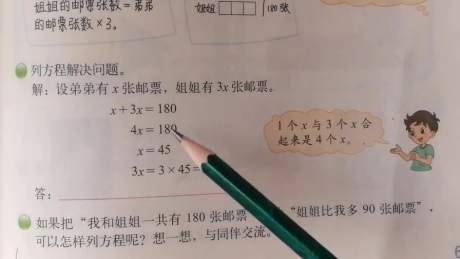 姐姐的邮票张数=弟弟
的邮票张数×3。
姐姐
180张
列方程解决问题。
解:设弟弟有x张邮票,姐姐有3x张邮票。
x+3x=180
4x=180
x=45
3x=3×45=
1个x与3个x合
起来是4个x。
答:
如果把“我和姐姐一共有180张邮票 “姐姐比我多90张邮票”,
可以怎样列方程呢?想一想,与同伴交流。